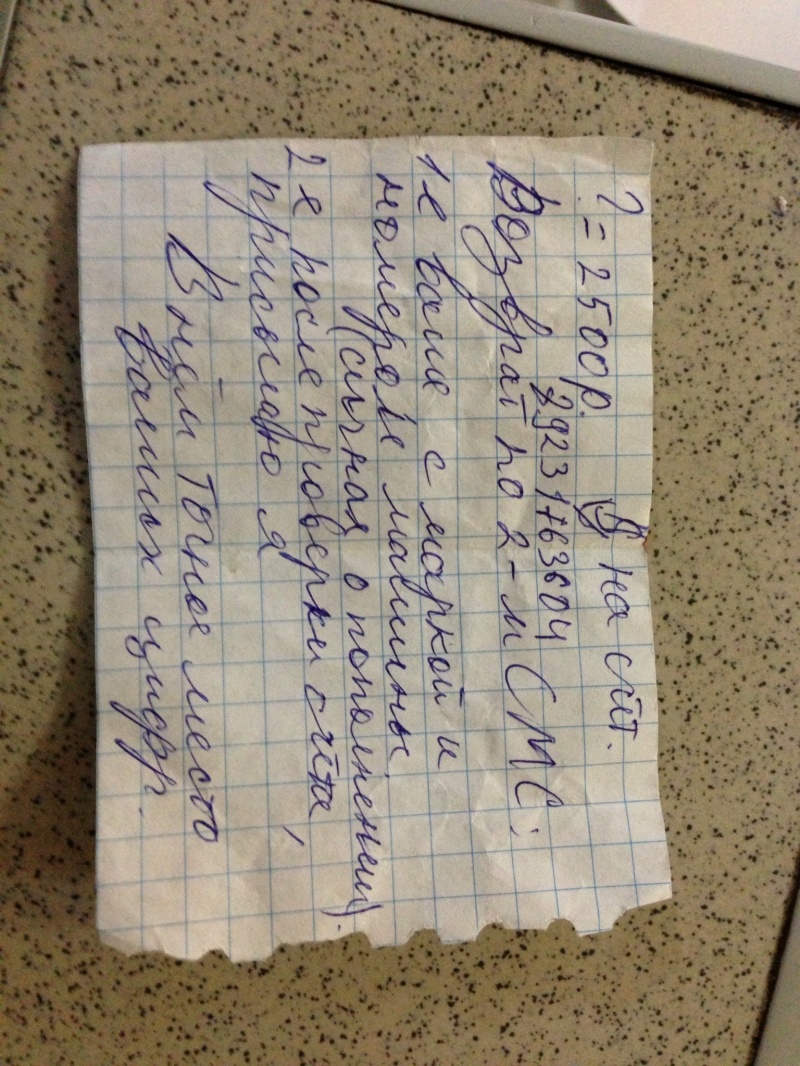 ? = 2500р. на сйт.
89231763604
Возврат по 2-м СМС:
1е ваше с маркой и
номером машины
(сигнал о пополнении).
2е после проверки счёта,
присылаю я
В нём точное место
ваших цифр.